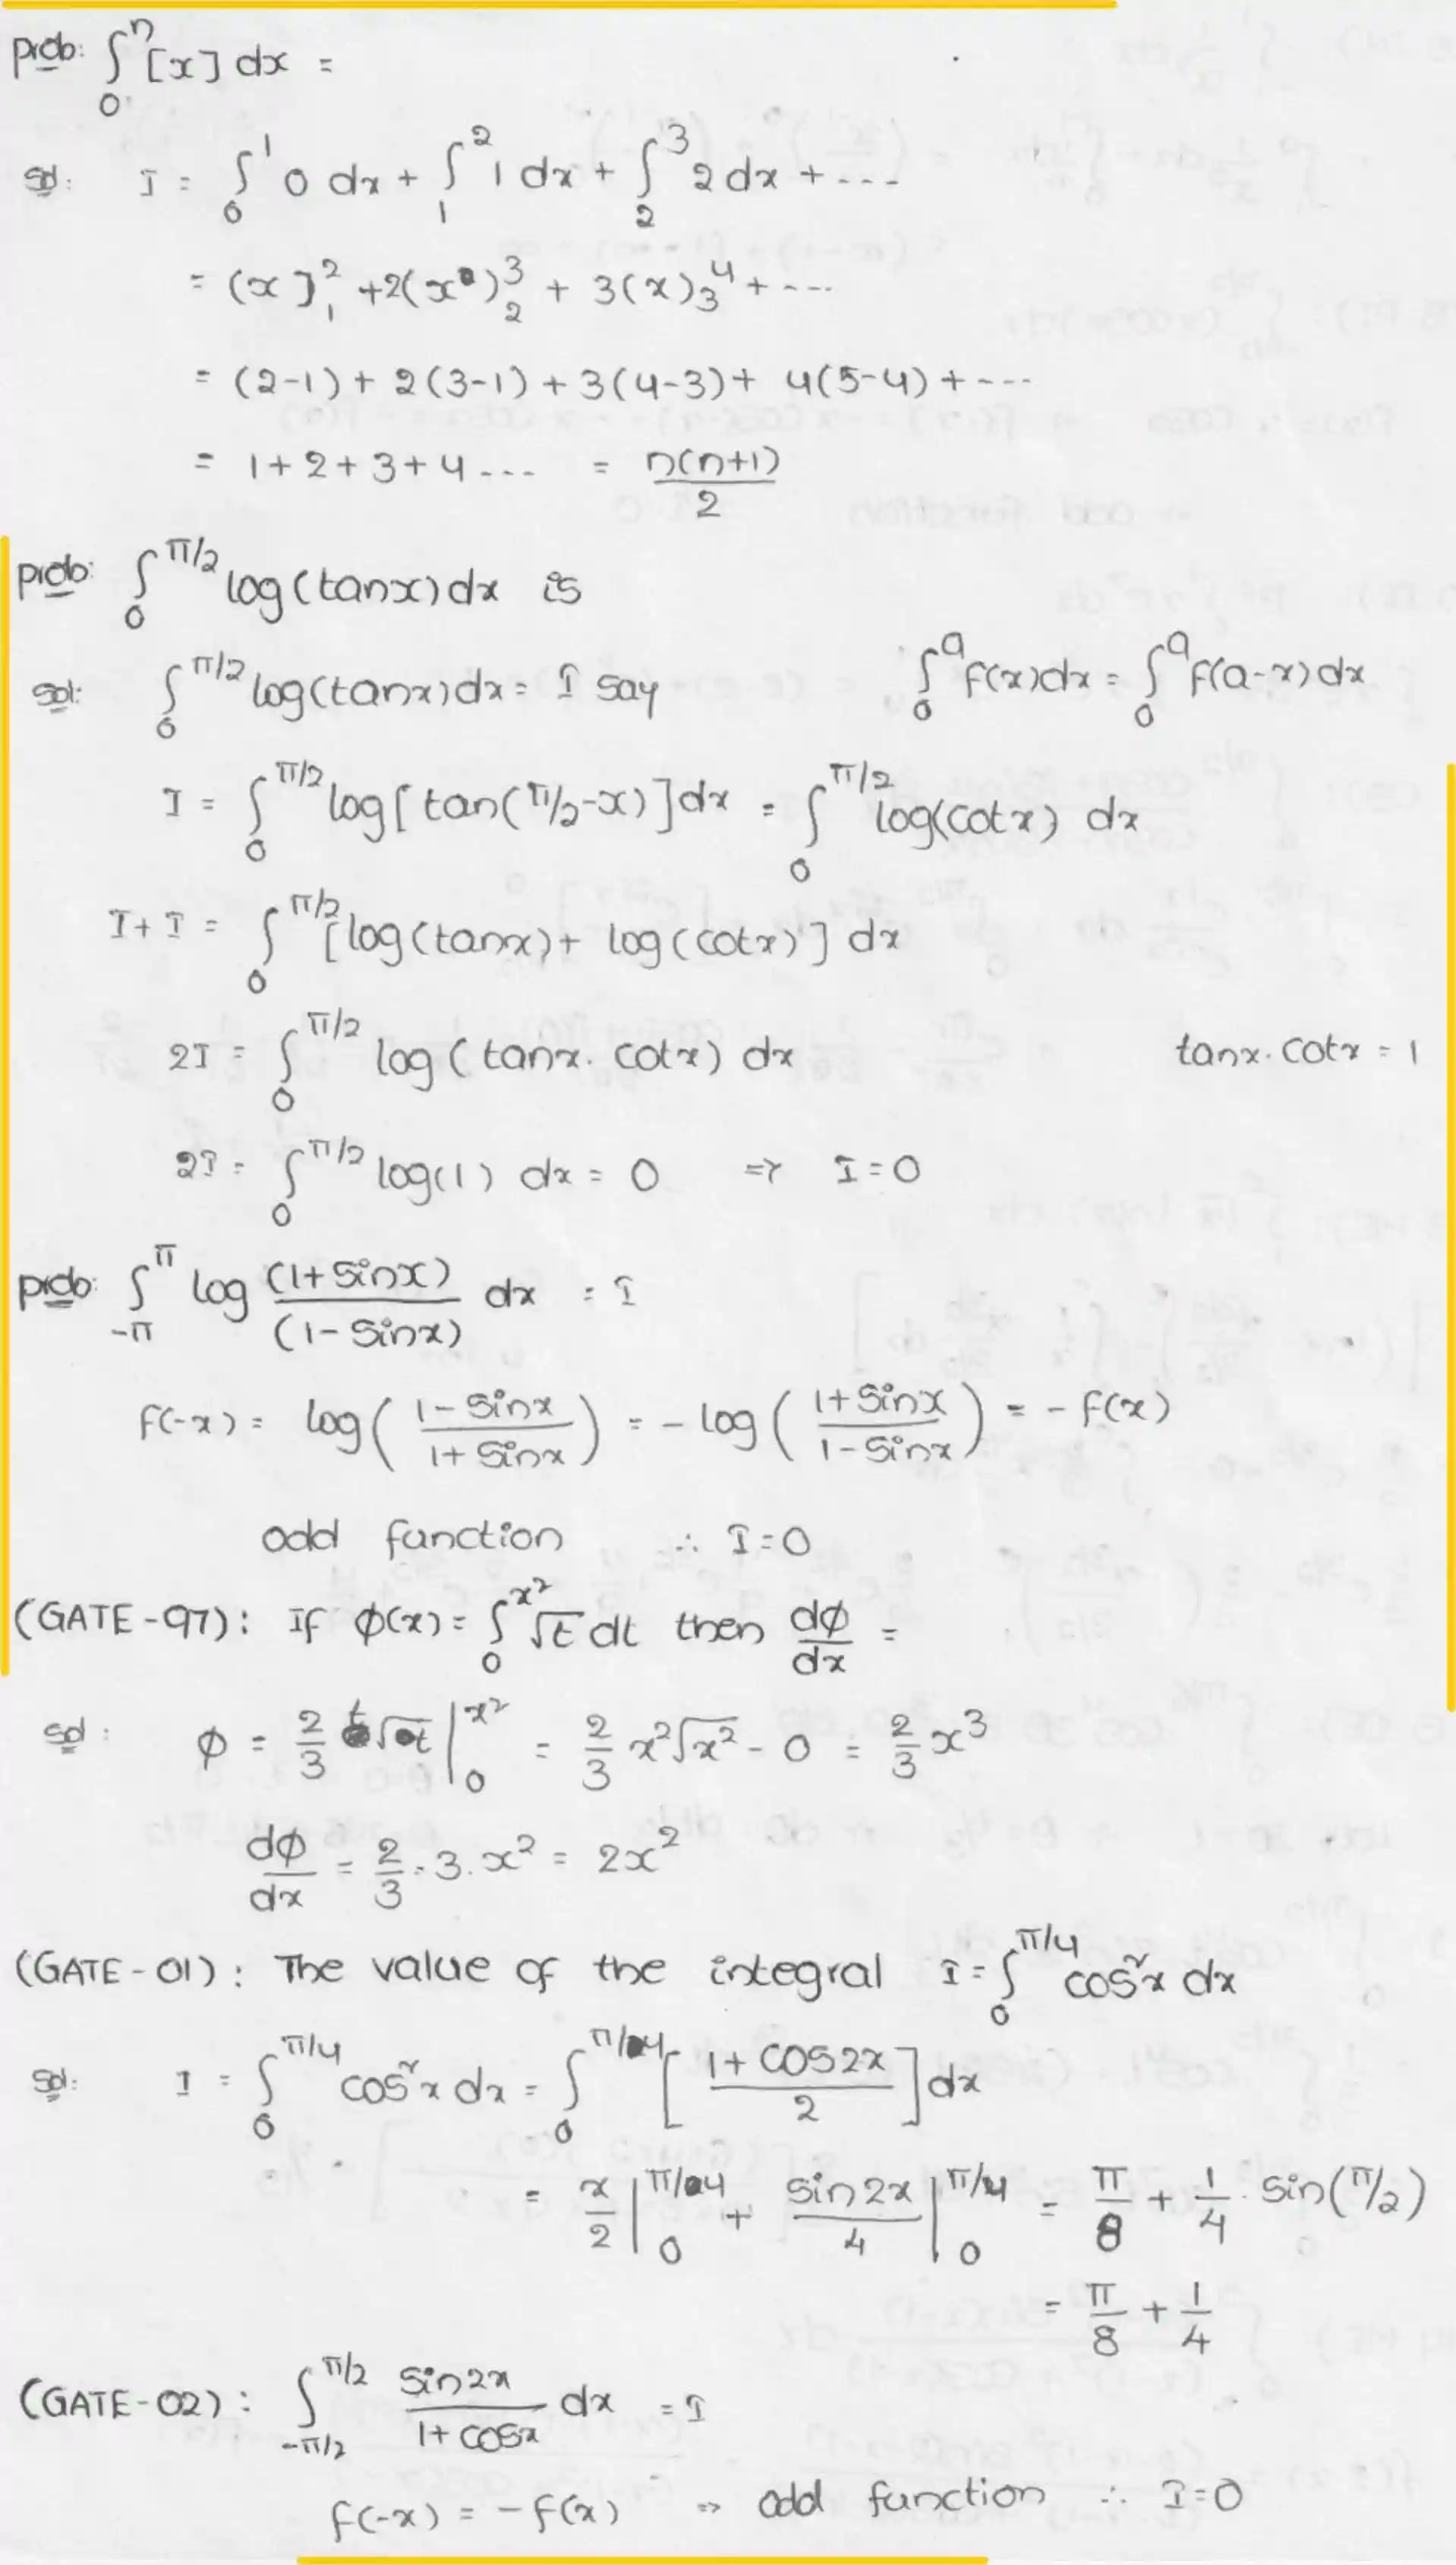 prob: ∫₀ⁿ [x] dx =
sol: I = ∫₀¹ 0 dx + ∫₁² 1 dx + ∫₂³ 2 dx + ---
= (x]₁² + 2(x)₂³ + 3(x)₃⁴ + ---
= (2-1) + 2(3-1) + 3(4-3) + 4(5-4) + ---
= 1+2+3+4 --- = n(n+1)/2
prob: ∫₀^(π/2) log(tanx) dx is
sol: ∫₀^(π/2) log(tanx) dx = I say ∫₀^a f(x)dx = ∫₀^a f(a-x) dx
I = ∫₀^(π/2) log[tan(π/2-x)] dx = ∫₀^(π/2) log(cotx) dx
I + I = ∫₀^(π/2) [log(tanx) + log(cotx)] dx
2I = ∫₀^(π/2) log(tanx. cotx) dx tanx. cotx = 1
2I = ∫₀^(π/2) log(1) dx = 0 ⇒ I=0
prob: ∫_(-π)^π log (1+sinx)/(1-sinx) dx = I
f(-x) = log((1-sinx)/(1+sinx)) = -log((1+sinx)/(1-sinx)) = -f(x)
odd function ∴ I=0
(GATE-97): If φ(x) = ∫₀^(x²) √t dt then dφ/dx =
sol: φ = 2/3 t√t |₀^(x²) = 2/3 x²√x² - 0 = 2/3 x³
dφ/dx = 2/3 . 3. x² = 2x²
(GATE-01): The value of the integral I = ∫₀^(π/4) cos²x dx
sol: I = ∫₀^(π/4) cos²x dx = ∫₀^(π/4) [(1+cos2x)/2] dx
= x/2 |₀^(π/4) + sin2x/4 |₀^(π/4) = π/8 + 1/4 . sin(π/2)
= π/8 + 1/4
(GATE-02): ∫_(-π/2)^(π/2) sin2x/(1+cosx) dx = I
f(-x) = -f(x) ⇒ odd function ∴ I=0